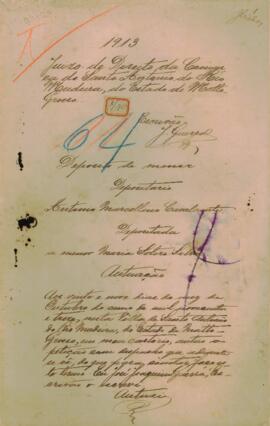 1913
Juizo de Direito da Comar
ca de Santo Antonio do Rio
Madeira, do Estado de Matto
Grosso
Escrivão
64
Deposito de menor
Depositario
Antonio Marcellino Cavalcante
Depositada
a menor Maria
Autuação
Aos vinte e nove dias do mez de
Outubro do anno de mil novecentos
e treze, nesta Villa de Santo Antonio
do Rio Madeira, do Estado de Matto
Grosso, em meu cartorio, autuo a
petição com despacho que adiante
se vê, do que, faço es
te termo. Eu José Joaquim, Es
crivão o escrevi
Autuei